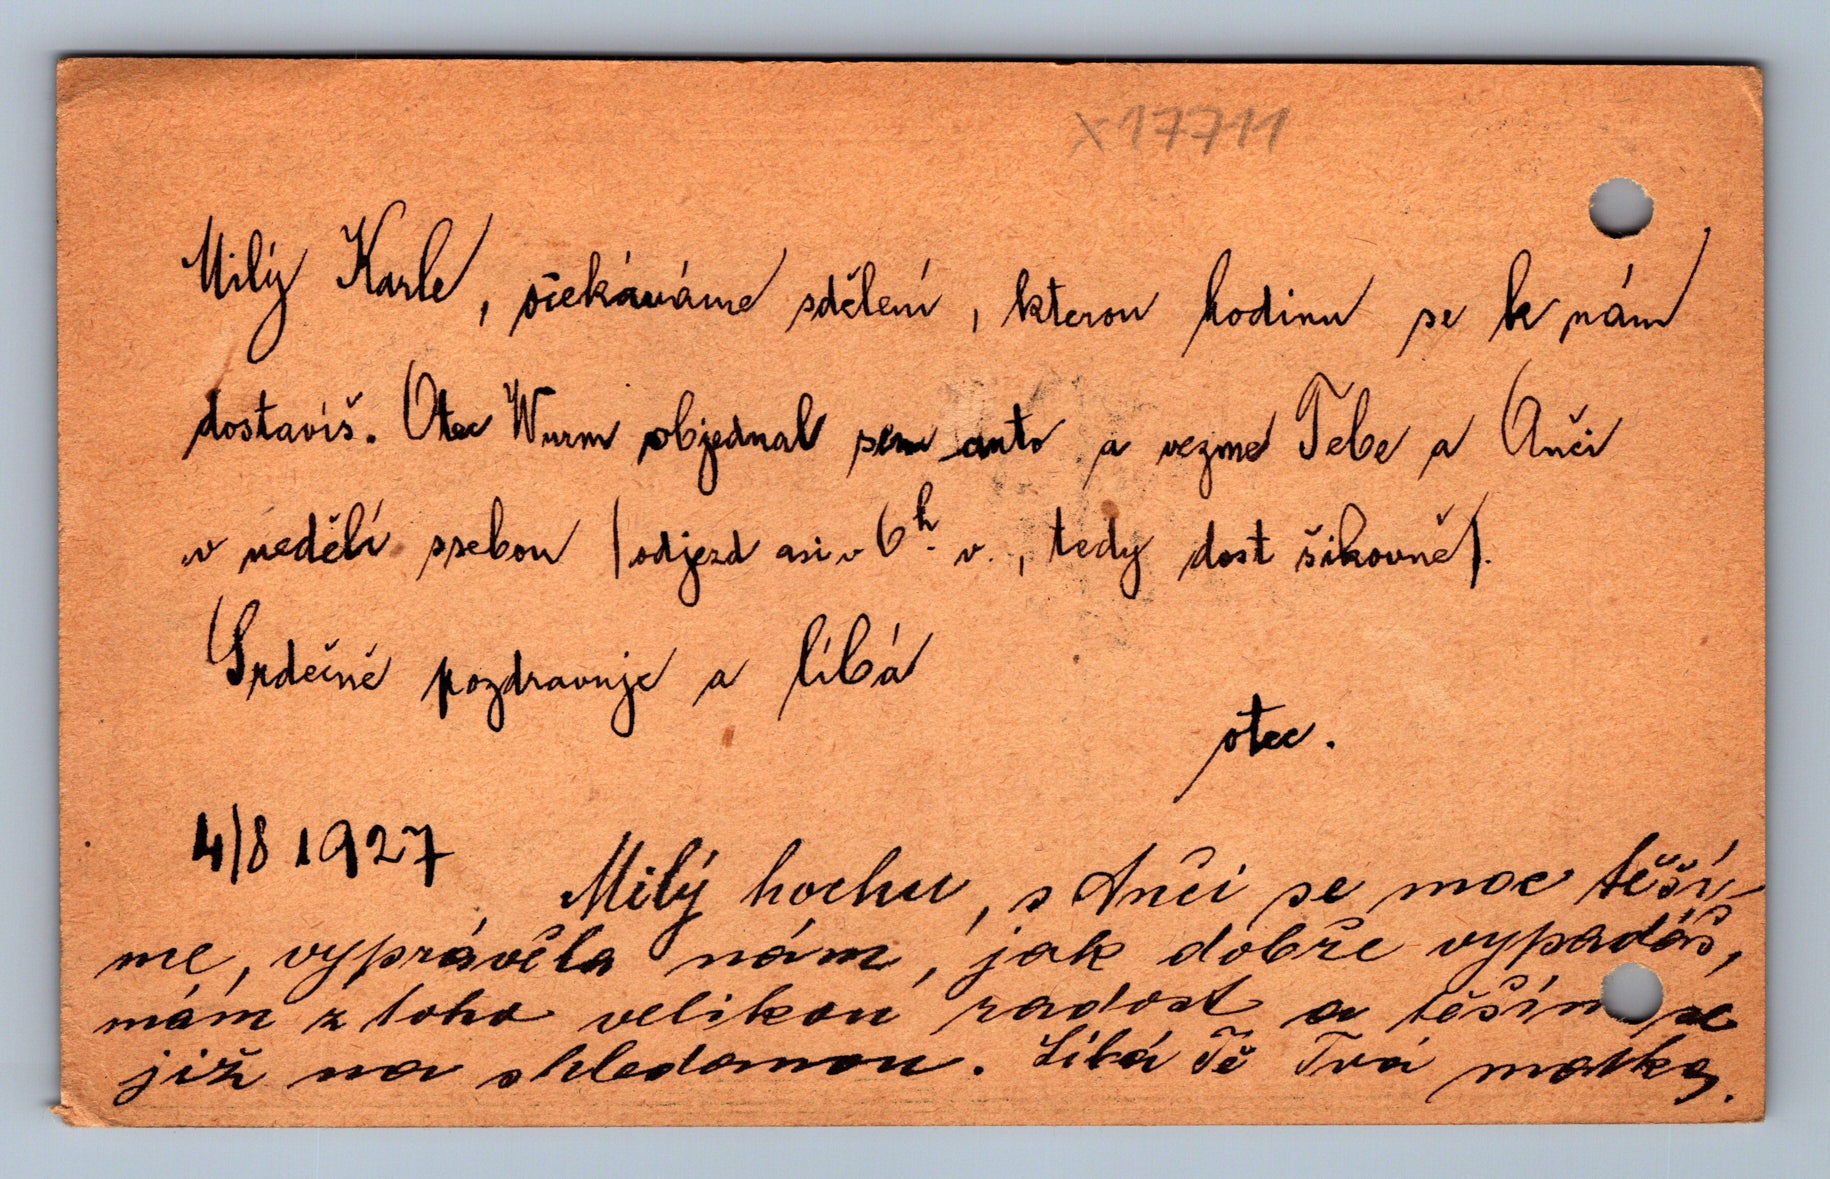 X17711
Milý Karle, očekáváme sdělení, kterou hodinu se k nám
dostavíš. Otec Wurm objednal sem auto a vezme Tebe a Anči
v neděli ssebou (odjezd asi v 6h. v., tedy dost šikovně).
Srdečně pozdravuje a líbá
otec.
4/8 1927
Milý hochu, s Anči se moc těší-
me, vyprávěla nám, jak dobře vypadáš,
mám z toho velikou radost a těším se
již na shledanou. Líbá Tě Tvá matka.